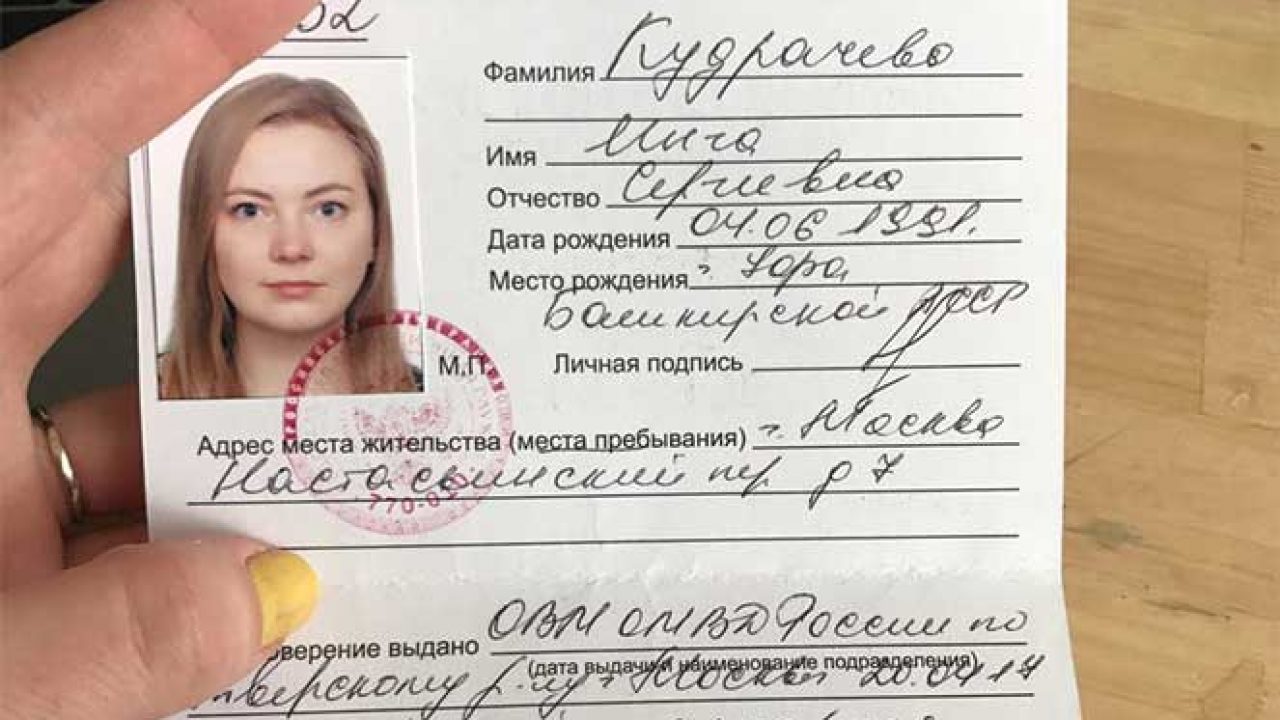 32
Фамилия Кудрачева
Имя Инга
Отчество Сергеевна
Дата рождения 04.06 1991.
Место рождения г. Уфа
Башкирской АССР
М.П. Личная подпись
Адрес места жительства (места пребывания) г. Москва
Настасьинский пер. д 7
770-030
ОВМ ОМВД России по
верение выдано
(дата выдачи и наименование подразделения)
Тверскому р-ну г. Москвы 20.04.17